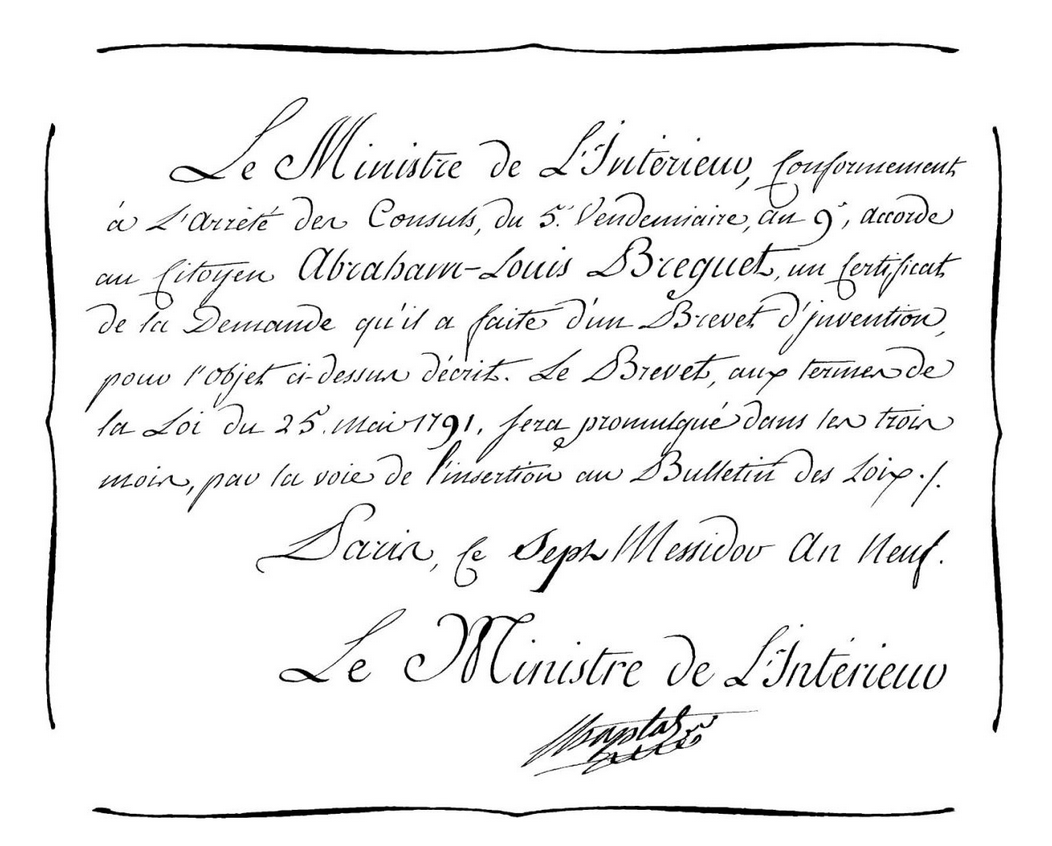 Le Ministre de L'Intérieur, Conformement
à L'Arrêté des Consuls, du 5. Vendemiaire, an 9e, accorde
au Citoyen Abraham-Louis Breguet, un Certificat
de la Demande qu'il a faite d'un Brevet d'jnvention,
pour l'objet ci-dessus décrit. Le Brevet, aux termes de
la Loi du 25. Mai 1791, sera promulgué dans les trois
mois, par la voie de l'insertion au Bulletin des Loix ./.
Paris, Ce Sept Messidor An Neuf.
Le Ministre de L'Intérieur
Chaptal